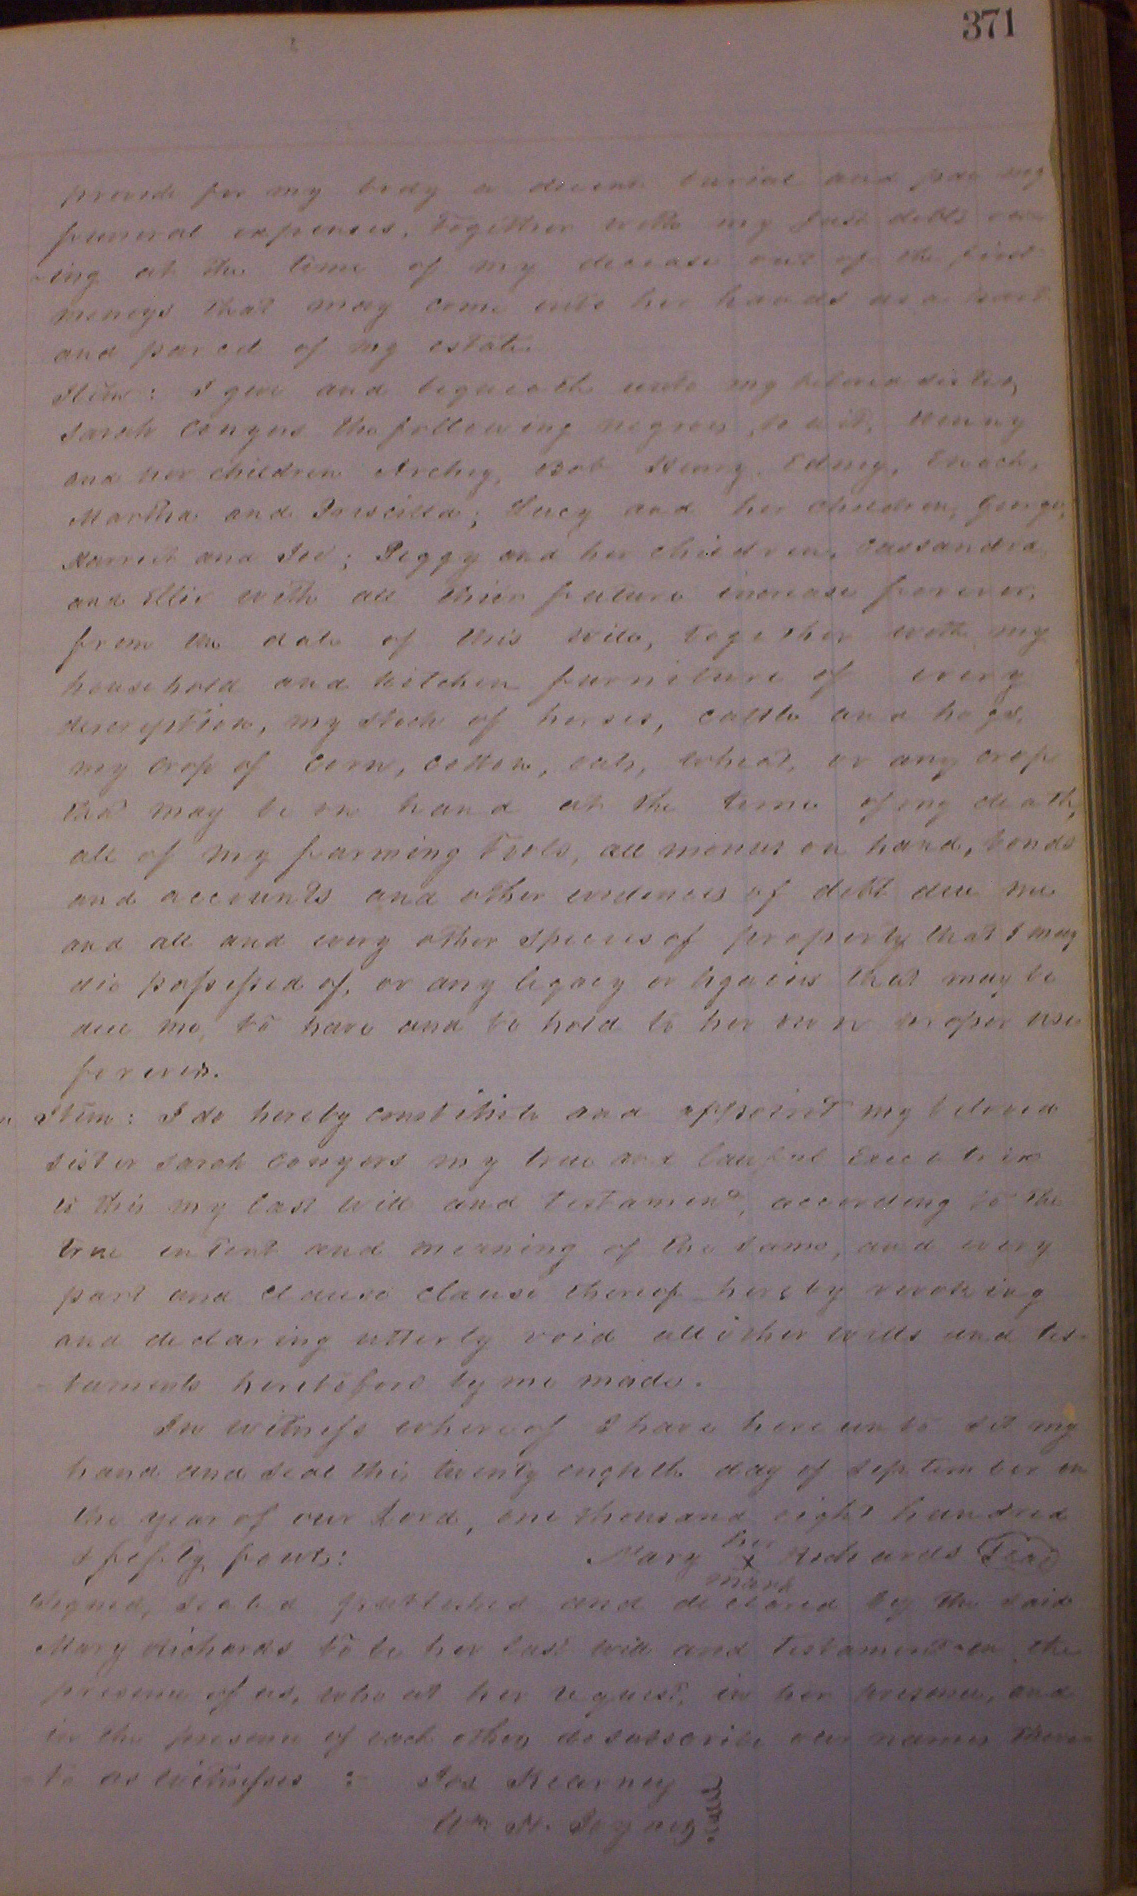 371
provide for my body a decent burial and pay my
funeral expenses, together with my just debts ow-
-ing at the time of my decease out of the first
moneys that may come into her hands as a part
and parcel of my estate.
Item: I give and bequeath unto my beloved sister,
Sarah Conyers the following negroes, to wit,
and her children Archey, Bob Henry Edney, Enoch,
Martha and Priscilla; Lucy and her children, George,
Harriet and Joe; Peggy and her children, Cassandra
and Ellic with all their future increase forever,
from the date of this will, together with my
household and kitchen furniture of every
description, my stock of horses, cattle and hogs,
my crop of corn, cotton, oats, wheat, or any crop
that may be on hand at the time of my death,
all of my farming tools, all monies on hand, bonds
and accounts and other evidences of debt due me
and all and every other species of property that I may
die possessed of, or any legacy or legacies that may be
due me, to have and to hold to her own proper use
forever.
Item: I do hereby constitute and appoint my beloved
sister Sarah Conyers my true and lawful Executrix
to this my last will and testament, according to the
true intent and meaning of the same, and every
part and clause clause thereof hereby revoking
and declaring utterly void all other wills and tes-
-taments heretofore by me made.
In witness whereof I have hereunto set my
hand and seal this twenty eighth day of September in
the year of our Lord, one thousand eight hundred
& fifty four: Mary her x mark Richards Seal
Signed, sealed published and declared by the said
Mary Richards to be her last will and testament in the
presence of us, who at her request, in her presence, and
in the presence of each other do subscribe our names there-
-to as witnesses : Jos Kearney
Wm H.